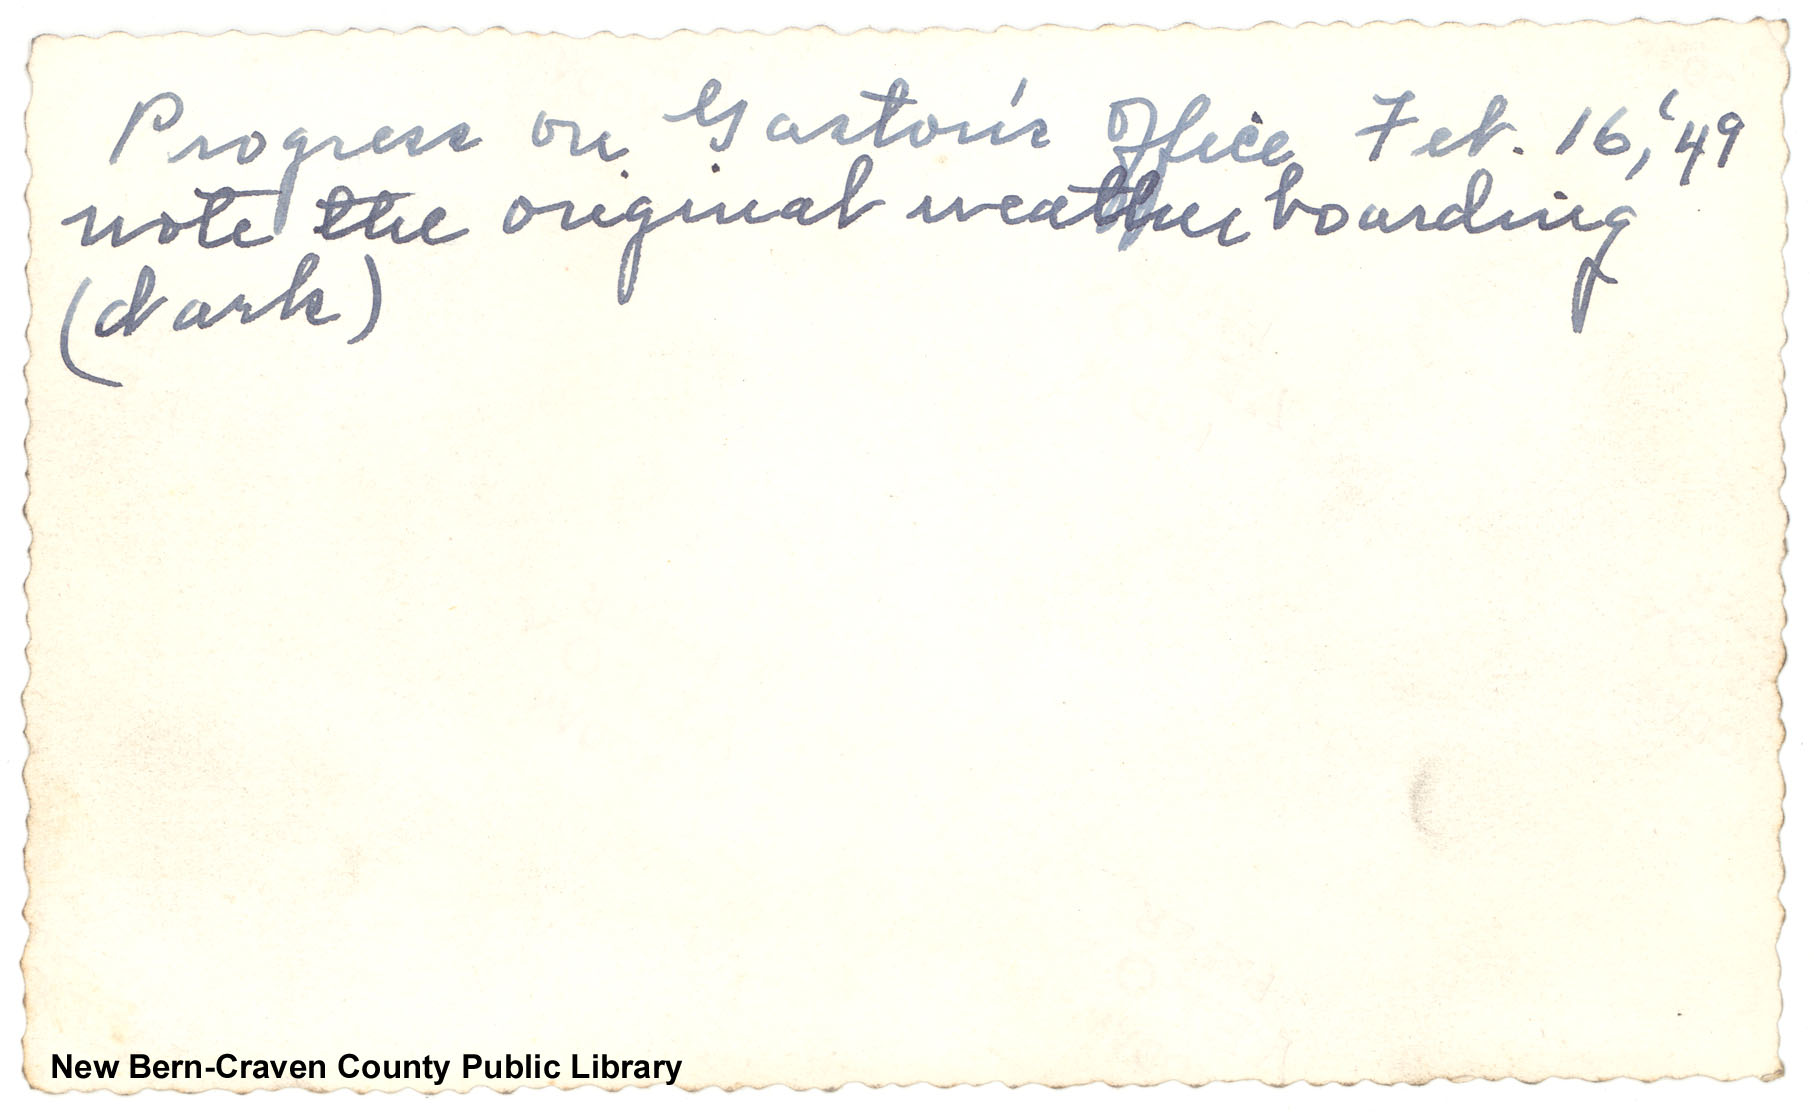 Progress on Gaston's Office, Feb. 16, '49
note the original weatherboarding
(dark)
New Bern-Craven County Public Library